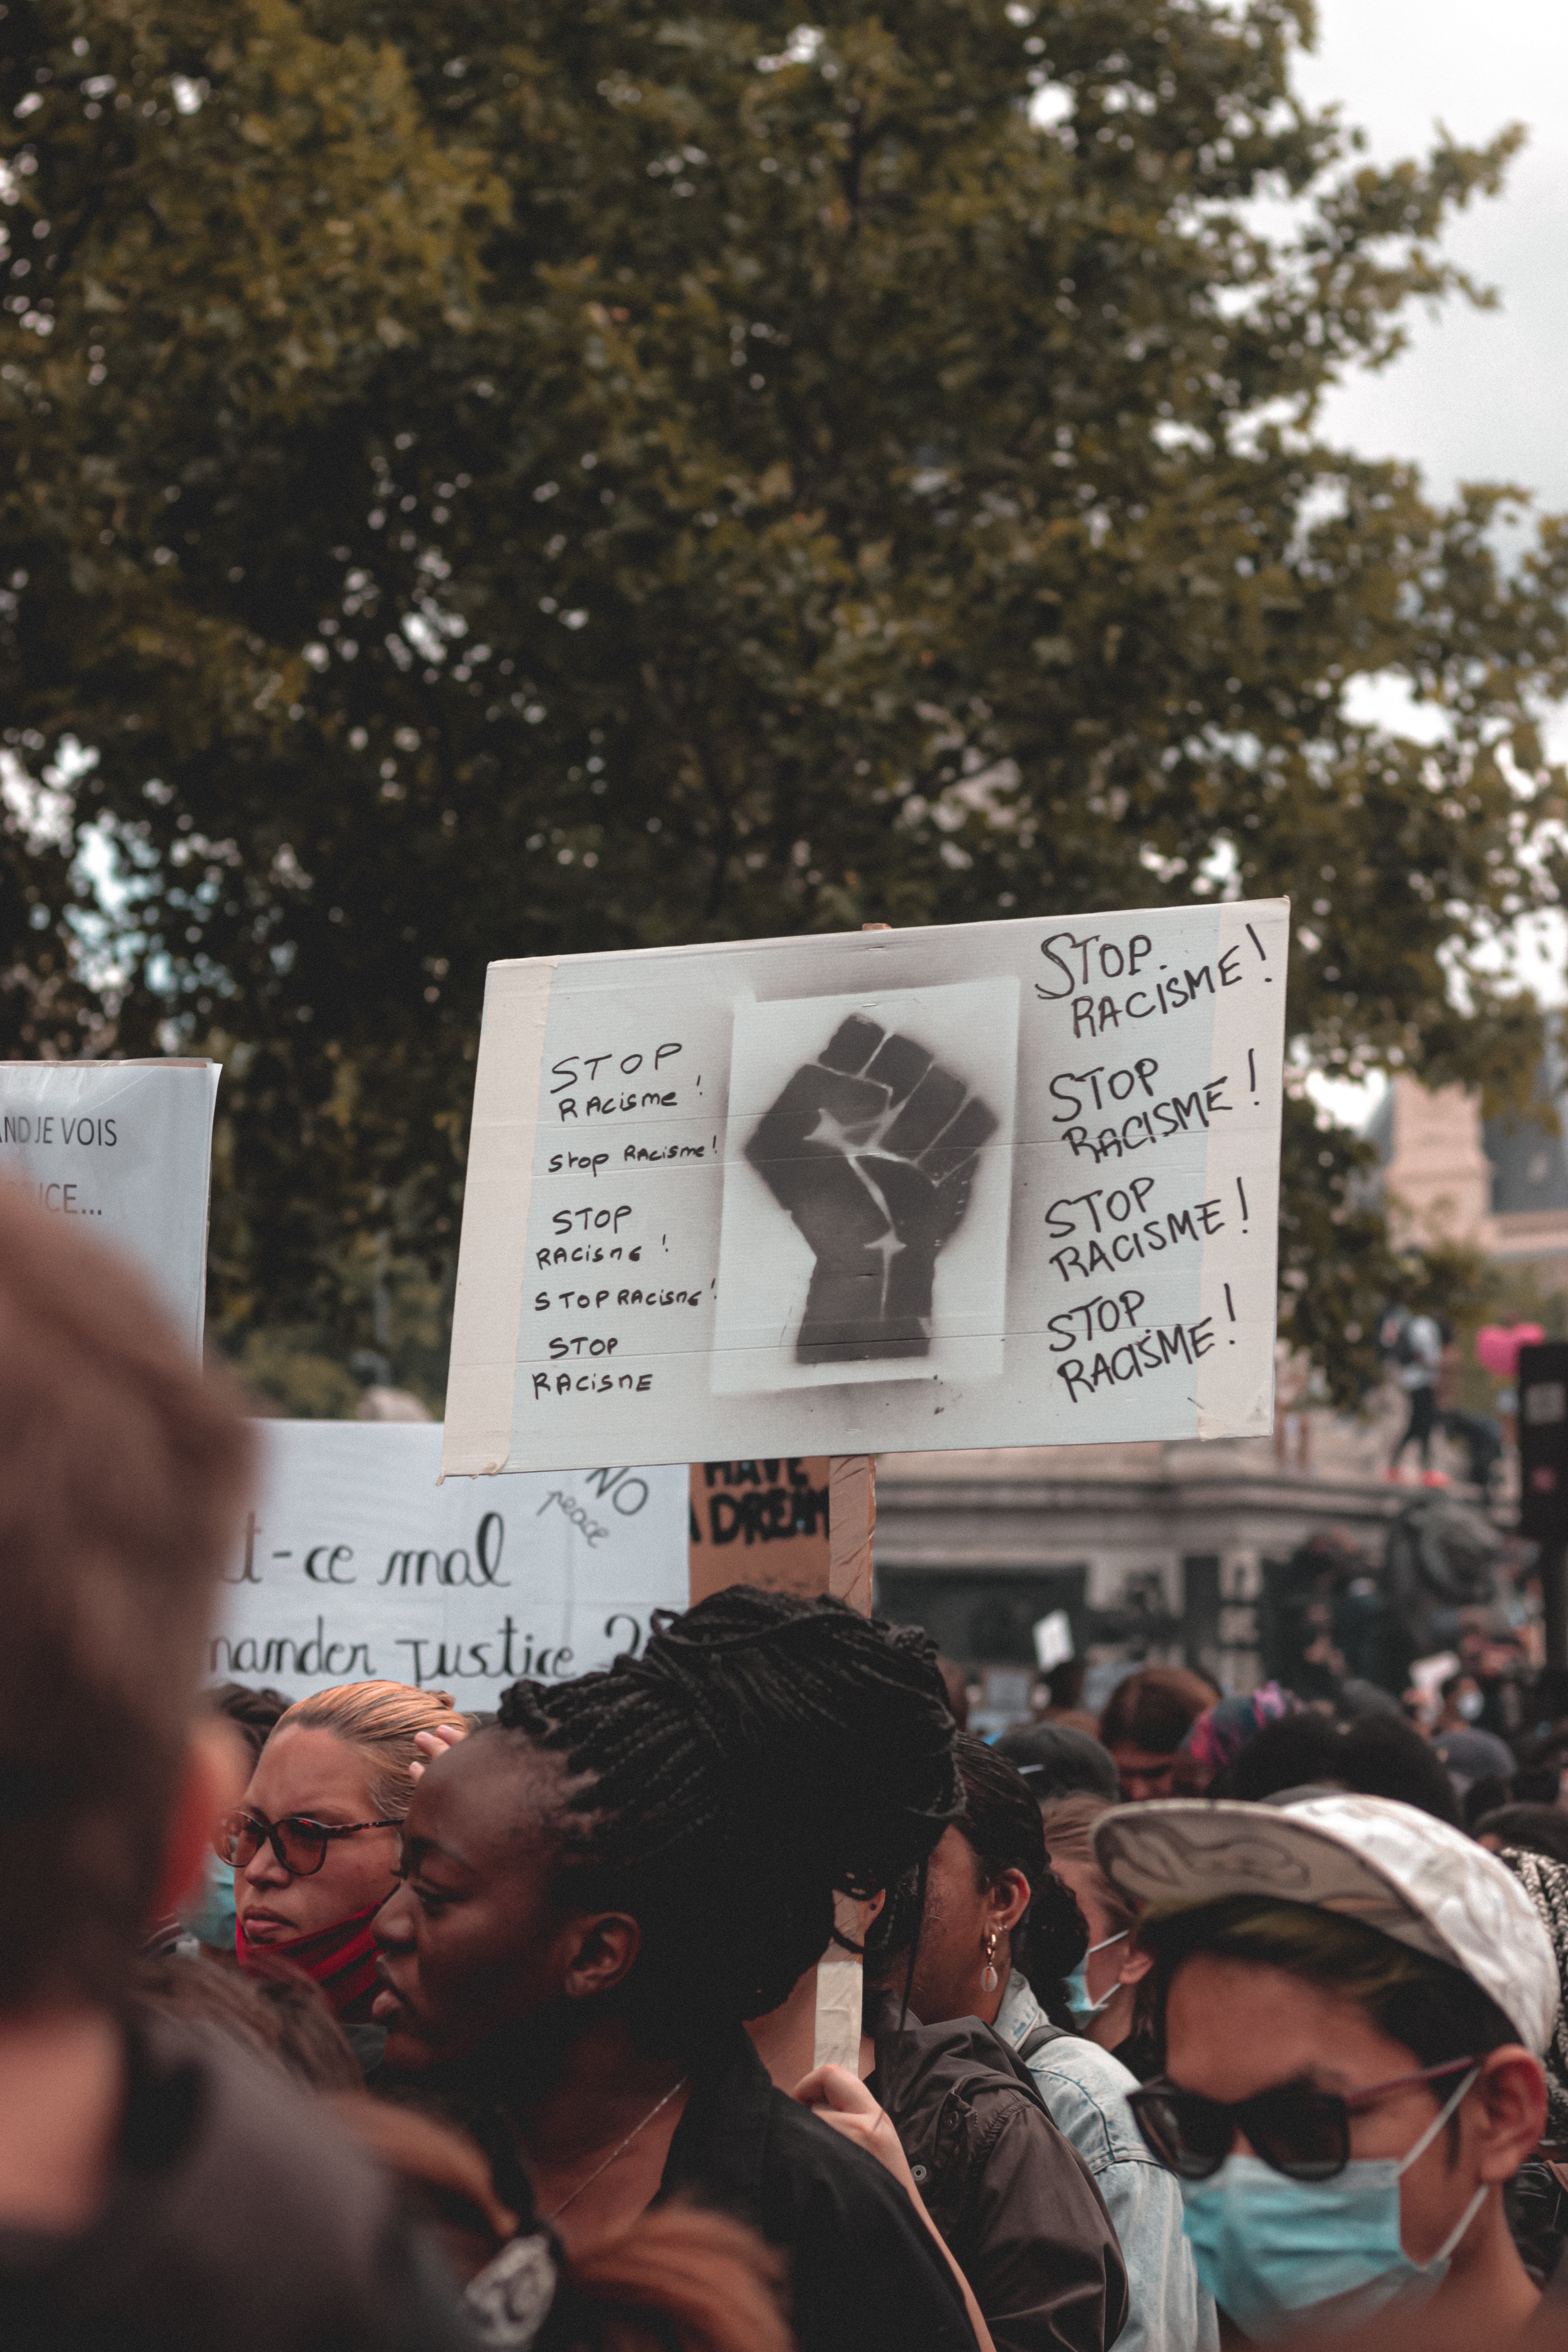 STOP
RACisme !
Stop RACisme !
STOP
RACisme !
STOP RACisme !
STOP
RACismE
STOP
RACISME !
STOP
RACISME !
STOP
RACISME !
STOP
RACISME !
JE VOIS
NO
peace
-ce mal
Justice ?
HAVE
A DREAM